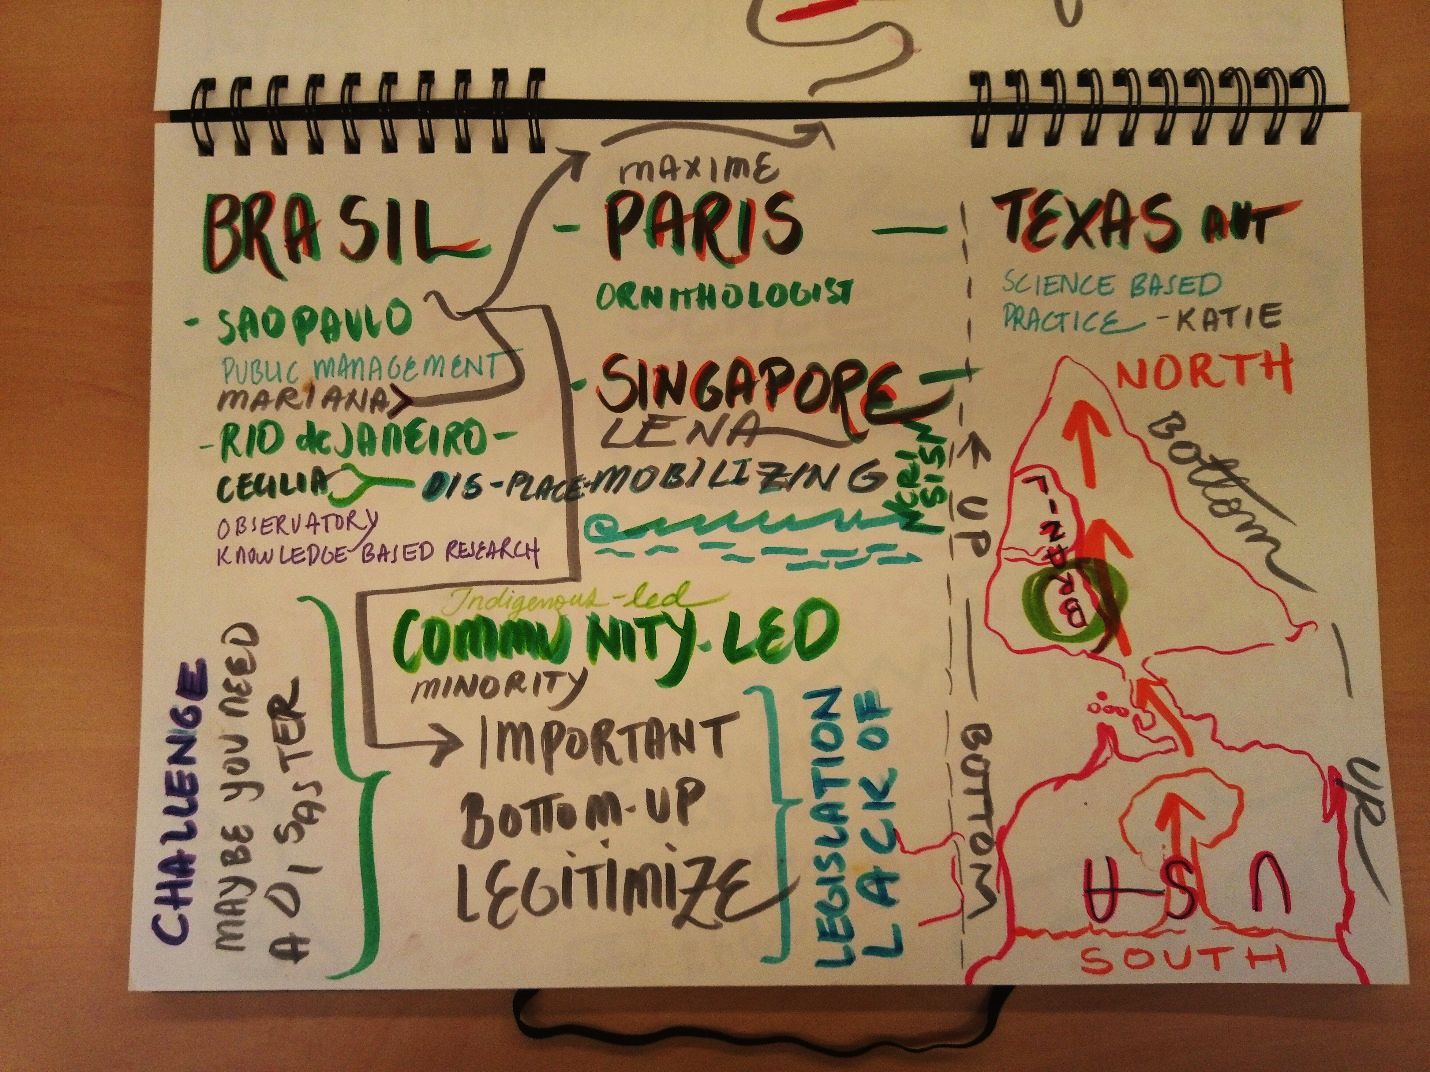 BRASIL
- SAO PAULO
PUBLIC MANAGEMENT
MARIANA
- RIO de JANEIRO -
CECILIA
OBSERVATORY
KNOWLEDGE-BASED RESEARCH
MAXIME
- PARIS -
ORNITHOLOGIST
- SINGAPORE -
LENA
DIS-PLACE-MOBILIZING
Indigenous-led
COMMUNITY-LED
MINORITY
IMPORTANT
BOTTOM-UP
LEGITIMIZE
CHALLENGE
MAYBE YOU NEED
A DISASTER
LEGISLATION
LACK OF
UP
BOTTOM
TEXAS
SCIENCE BASED
PRACTICE - KATIE
NORTH
Bottom
- UP
BRAZIL
USA
SOUTH